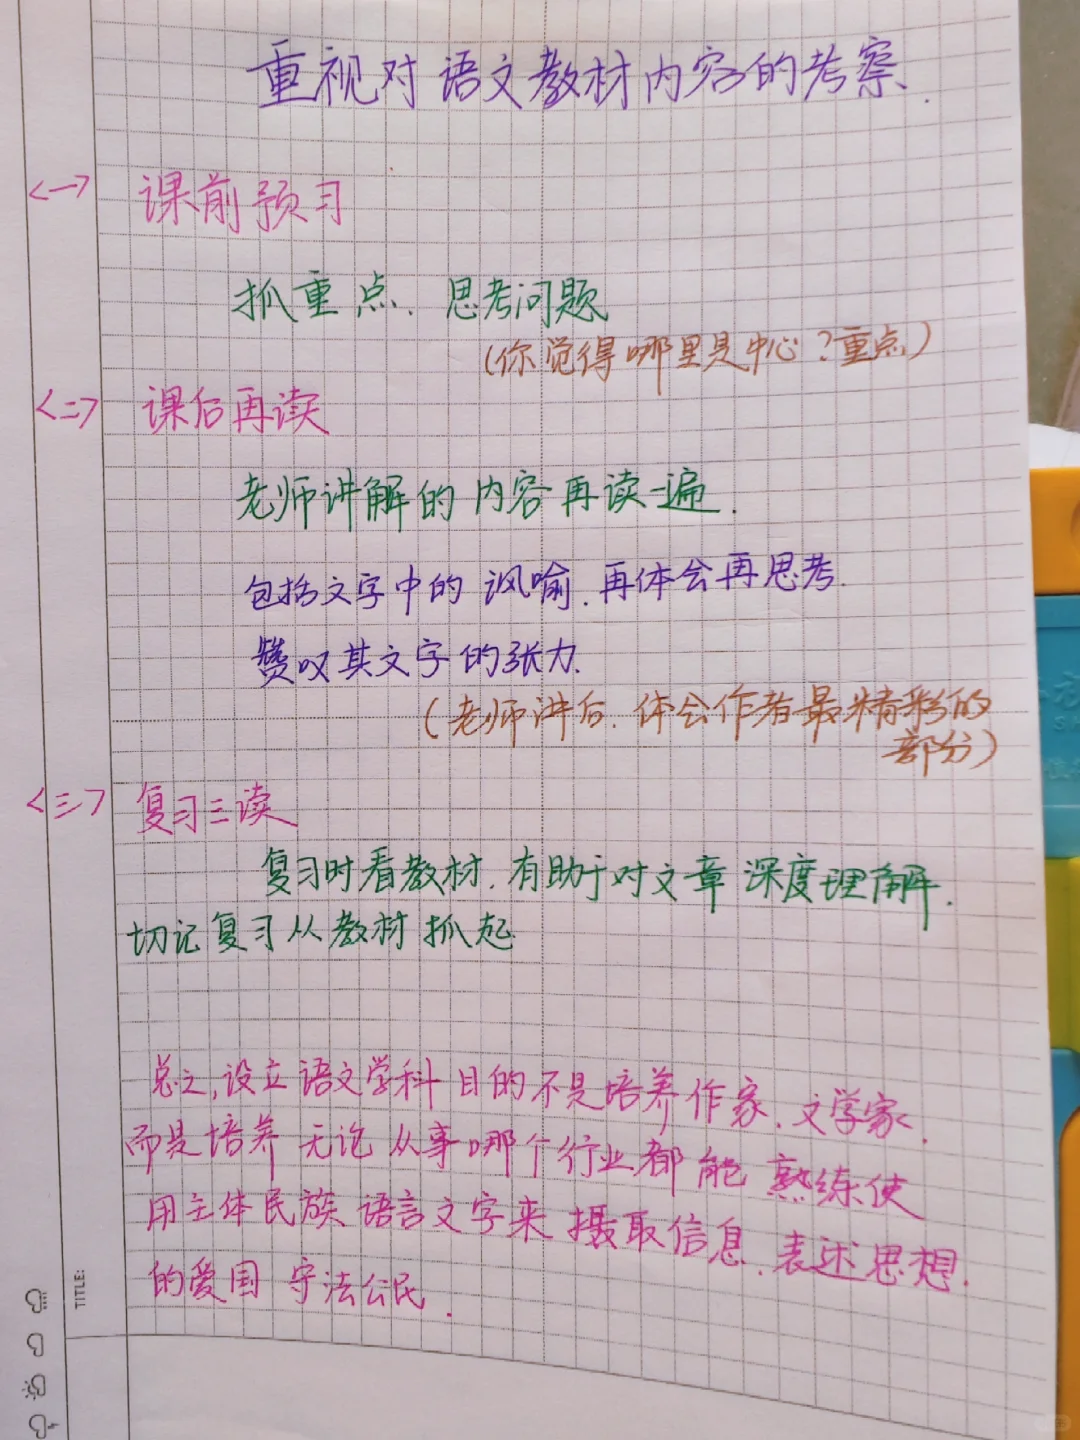 重视对语文教材内容的考察.
<一> 课前预习
抓重点、思考问题
(你觉得哪里是中心?重点)
<二> 课后再读
老师讲解的内容再读一遍.
包括文字中的讽喻.再体会再思考.
赞叹其文字的张力.
(老师讲后.体会作者最精彩的
部分)
<三> 复习三读
复习时看教材.有助于对文章深度理解.
切记复习从教材抓起
总之,设立语文学科目的不是培养作家.文学家.
而是培养无论从事哪个行业都能熟练使
用主体民族语言文字来摄取信息.表述思想.
的爱国守法公民.
TITLE: